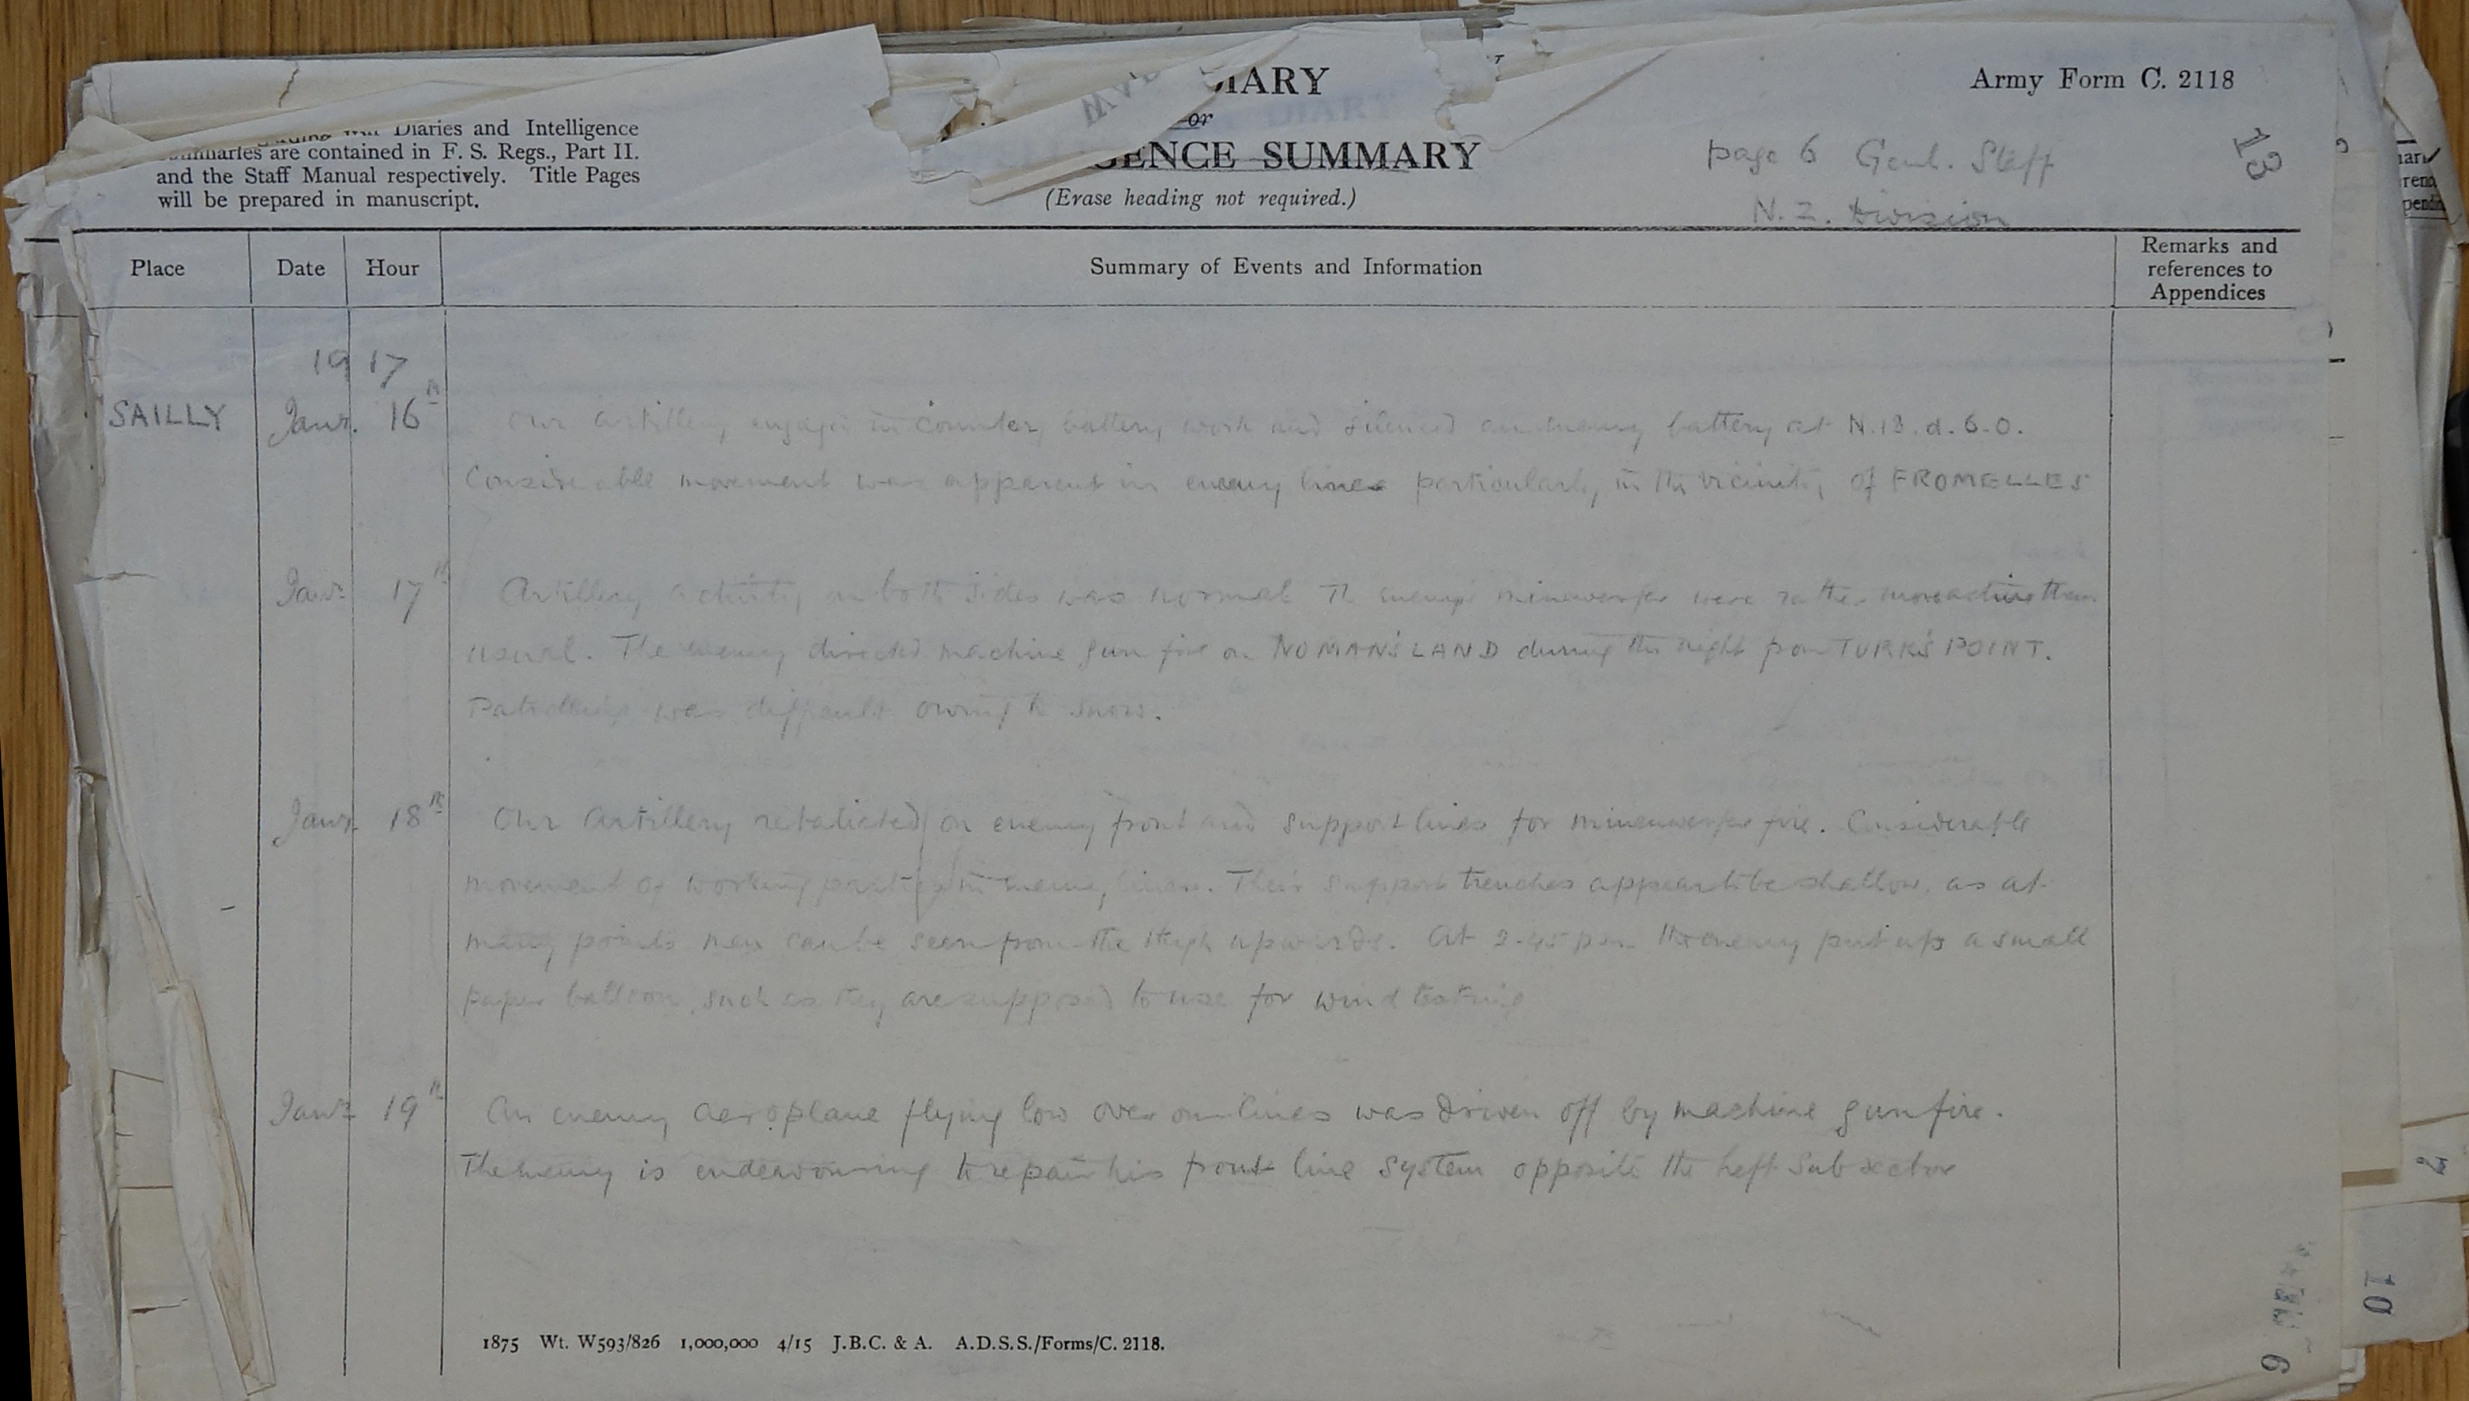 DIARY
Army Form C. 2118
Diaries and Intelligence
or
Summaries are contained in F. S. Regs., Part II.
GENCE SUMMARY
page 6 Genl. Staff
13
and the Staff Manual respectively. Title Pages
will be prepared in manuscript.
(Erase heading not required.)
N. Z. Division
Place Date Hour Summary of Events and Information Remarks and references to Appendices
1917
SAILLY Janr. 16th Our artillery engaged in counter battery work and silenced an enemy battery at N.13.d.6.0.
Considerable movement was apparent in enemy lines particularly in the vicinity of FROMELLES
Janr 17th Artillery activity on both sides was normal The enemy's minenwerfer were rather more active than
usual. The enemy directed machine gun fire on NO MAN'S LAND during the night from TURK'S POINT.
Patrolling was difficult owing to snow.
Janr. 18th Our artillery retaliated on enemy front and support lines for minenwerfer fire. Considerable
movement of working parties in enemy lines. Their support trenches appear to be shallow, as at
many points men can be seen from the thigh upwards. At 2.45 p.m. the enemy put up a small
paper balloon, such as they are supposed to use for wind testing
Janr 19th An enemy aeroplane flying low over our lines was driven off by machine gun fire.
The enemy is endeavouring to repair his front line system opposite the left subsector
1875 Wt. W593/826 1,000,000 4/15 J.B.C. & A. A.D.S.S./Forms/C. 2118.
7
10
6